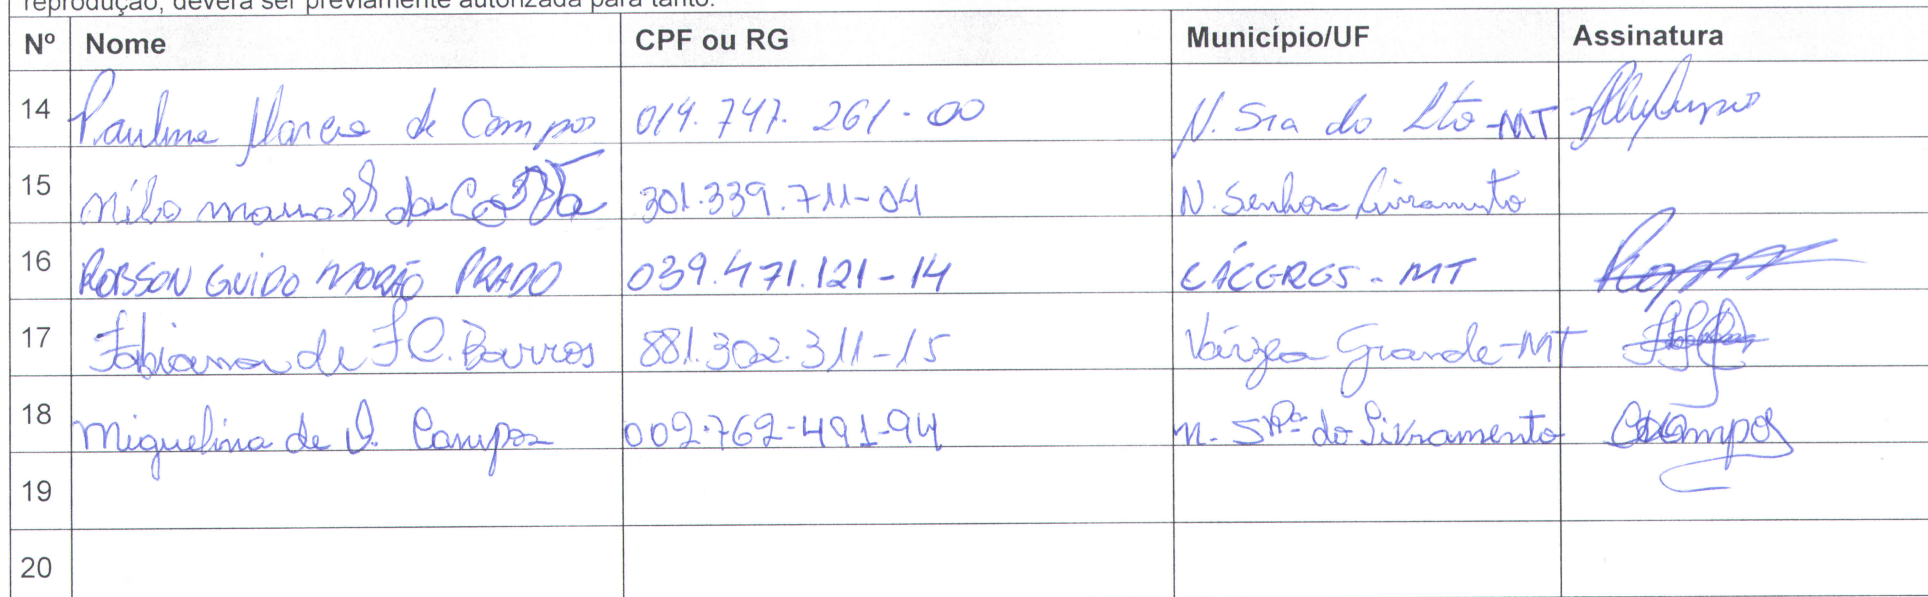 reprodução, deverá ser previamente autorizada para tanto.
Nº Nome CPF ou RG Município/UF Assinatura
14 Pauline Marcia de Campos 014.747.261-00 N. Sra do Lto-MT
15 Nilo da Costa 301.339.711-04 N. Senhora Livramento
16 ROBSON GUIDO MORÃO PRADO 039.471.121-14 CÁCERES - MT
17 Fabiana de F C. Barros 881.302.311-15 Várzea Grande-MT
18 Miguelina de O. Campos 002.762-491-94 n. Srª do Livramento Campos
19
20